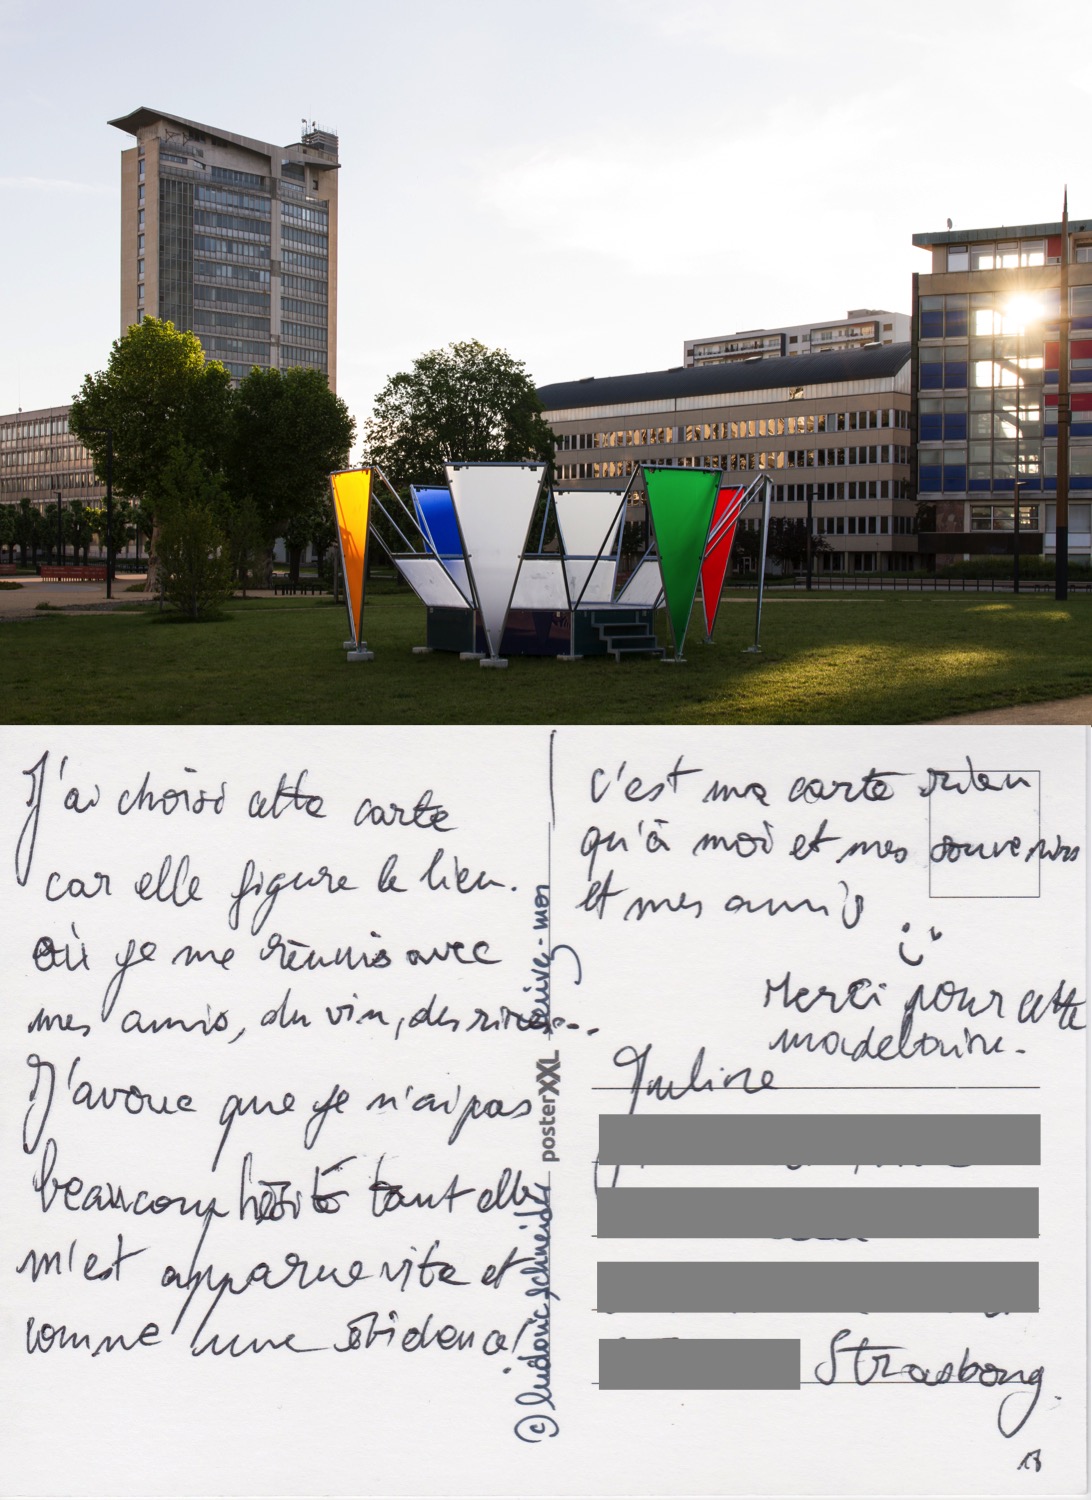 J'ai choisi cette carte
car elle figure le lieu.
où je me réunis avec
mes amis, du vin, des rires...
J'avoue que je n'ai pas
beaucoup hésité tant elle
m'est apparue vite et
comme une évidence!
© ludovic schneider posterXXL écrive-moi
c'est ma carte rien
qu'à moi et mes souvenirs
et mes amis
Merci pour cette
madelaine.
Juline
Strasbourg.
18